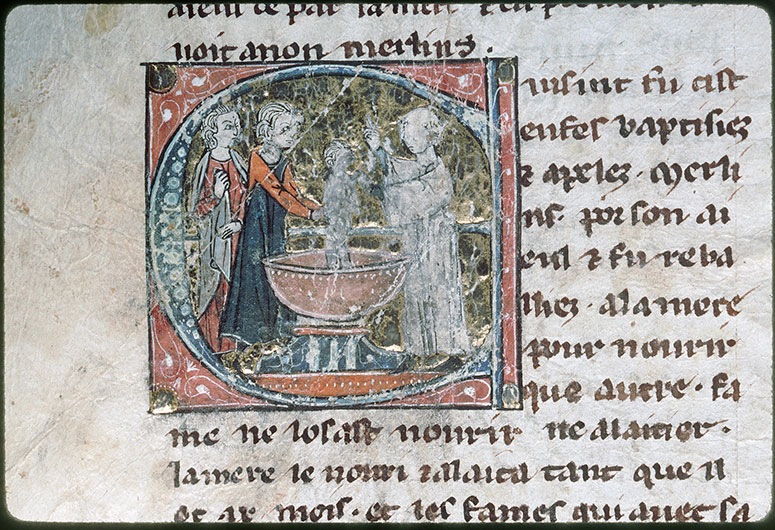 voit a non merlins.
uisint fu cist
enfes baptisiez
⁊ apelez. Merli
ns. por son ai
eul ⁊ fu reba
lliez. a la mere
pour nourir
que autre. fa
me ne losast nourir ne alaitier.
la mere le nouri ⁊ alaita tant que il
ot .ix. mois. et les fames qui avec sa